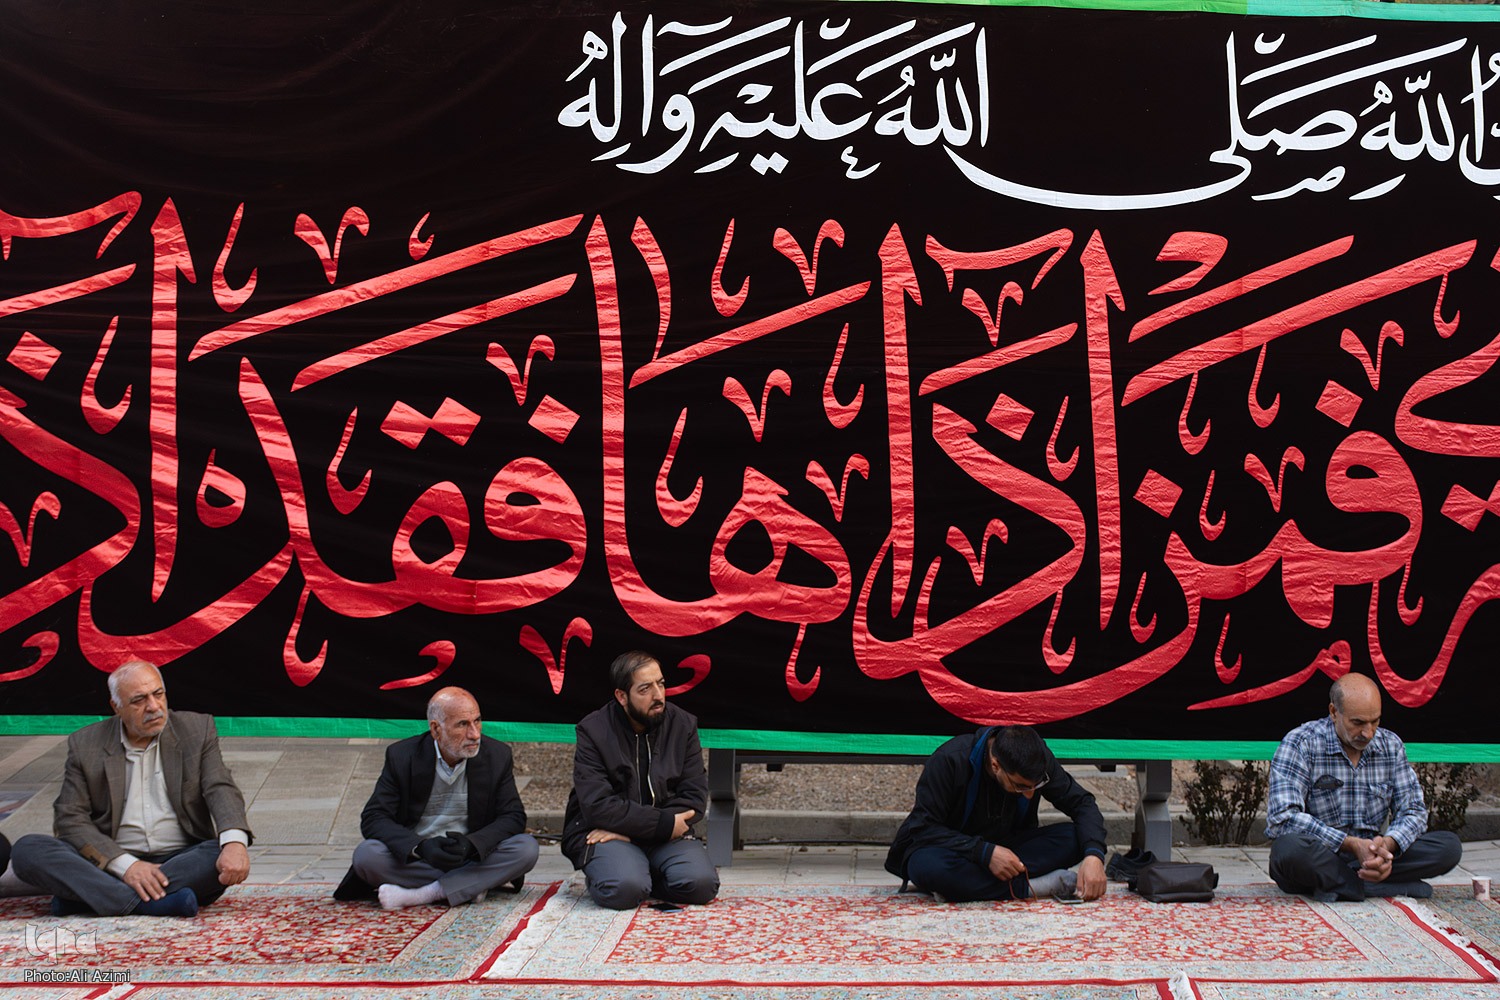 اللّهِ صَلَّى اللّهُ عَلَيْهِ وَآلِهِ
فَمَنْ آذَاهَا فَقَدْ
Iqna
Photo:Ali Azimi